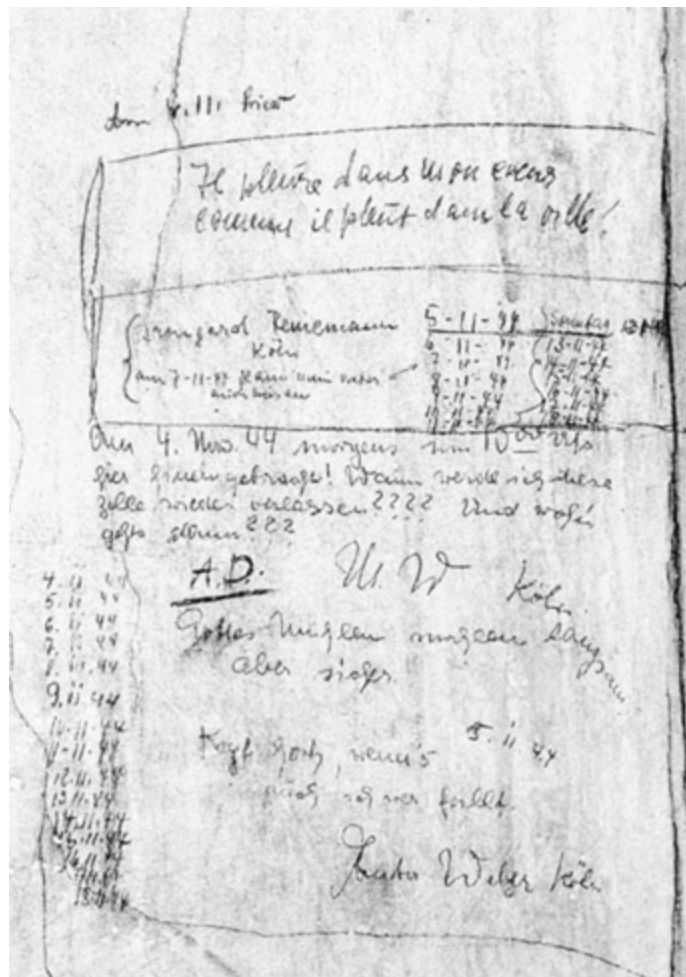 Am 4.11.
Il pleure dans mon coeur
comme il pleut dans la ville!
Irmgard Reinemann
Köln
am 7-11-44 kam mein vater
5-11-44 Sonntag
6-11-44 13-11-44
7-11-44 14-11-44
8-11-44 15-11-44
9-11-44
Am 4. Nov. 44 morgens um 10 00 Uhr
hier hineingebracht! Wann werde ich diese
Zelle wieder verlassen???? Und wohin
gehts dann???
A.D. M. W Köln
Gottes Mühlen mahlen langsam
aber sicher.
4.11 44
5.11 44
6.11 44
7.11 44
8.11.44
9.11.44
10-11-44
11-11-44
12.11.44
13.11.44
14.11.44
5.11 44
Kopf hoch, wenn's
auch schwer fällt.
Weber Köln